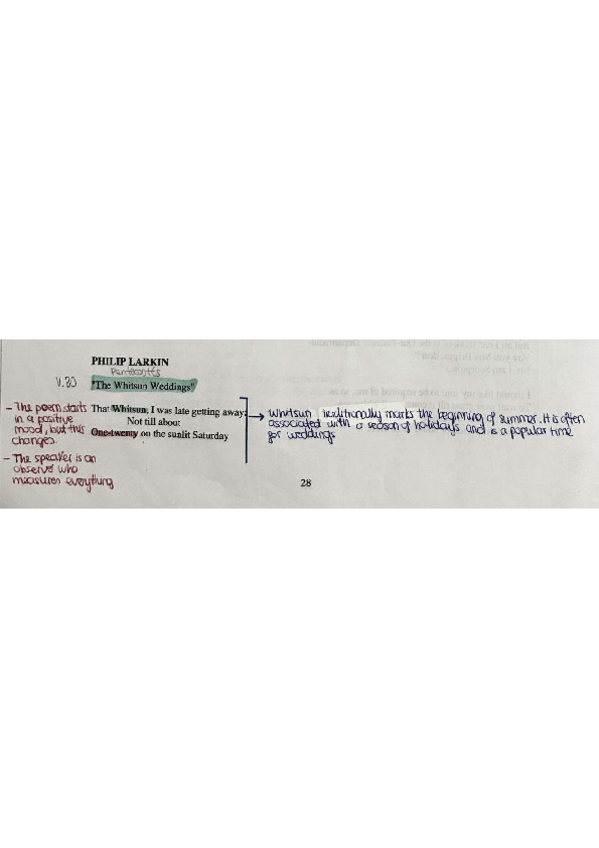 PHILIP LARKIN
Pentecostés
V.30
"The Whitsun Weddings"
That Whitsun, I was late getting away:
Not till about
One-twenty on the sunlit Saturday
- The poem starts
in a positive
mood, but this
changes.
- The speaker is an
observe who
measures everything
→ Whitsun traditionally marks the beginning of summer. It is often
associated with a season of holidays and is a popular time
for weddings
28